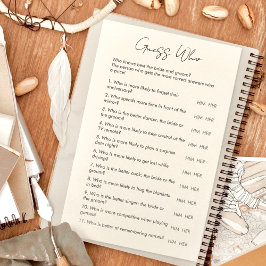 Guess Who
Who knows best the bride and groom?
The person who gets the most correct answers wins
a prize!
1. Who is more likely to forget their
anniversary?
HIM HER
2. Who spends more time in front of the
mirror?
HIM HER
3. Who is the better dancer, the bride or
the groom?
HIM HER
4. Who is more likely to take control of the
TV remote?
HIM HER
5. Who is more likely to plan a surprise
date night?
HIM HER
6. Who is more likely to get lost while
driving?
HIM HER
7. Who is the better cook, the bride or the
groom?
HIM HER
8. Who is more likely to hog the blankets
in bed?
HIM HER
9. Who is the better singer, the bride or
the groom?
HIM HER
10. Who is more competitive when playing
games?
HIM HER
11. Who is better at remembering names?
HIM HER